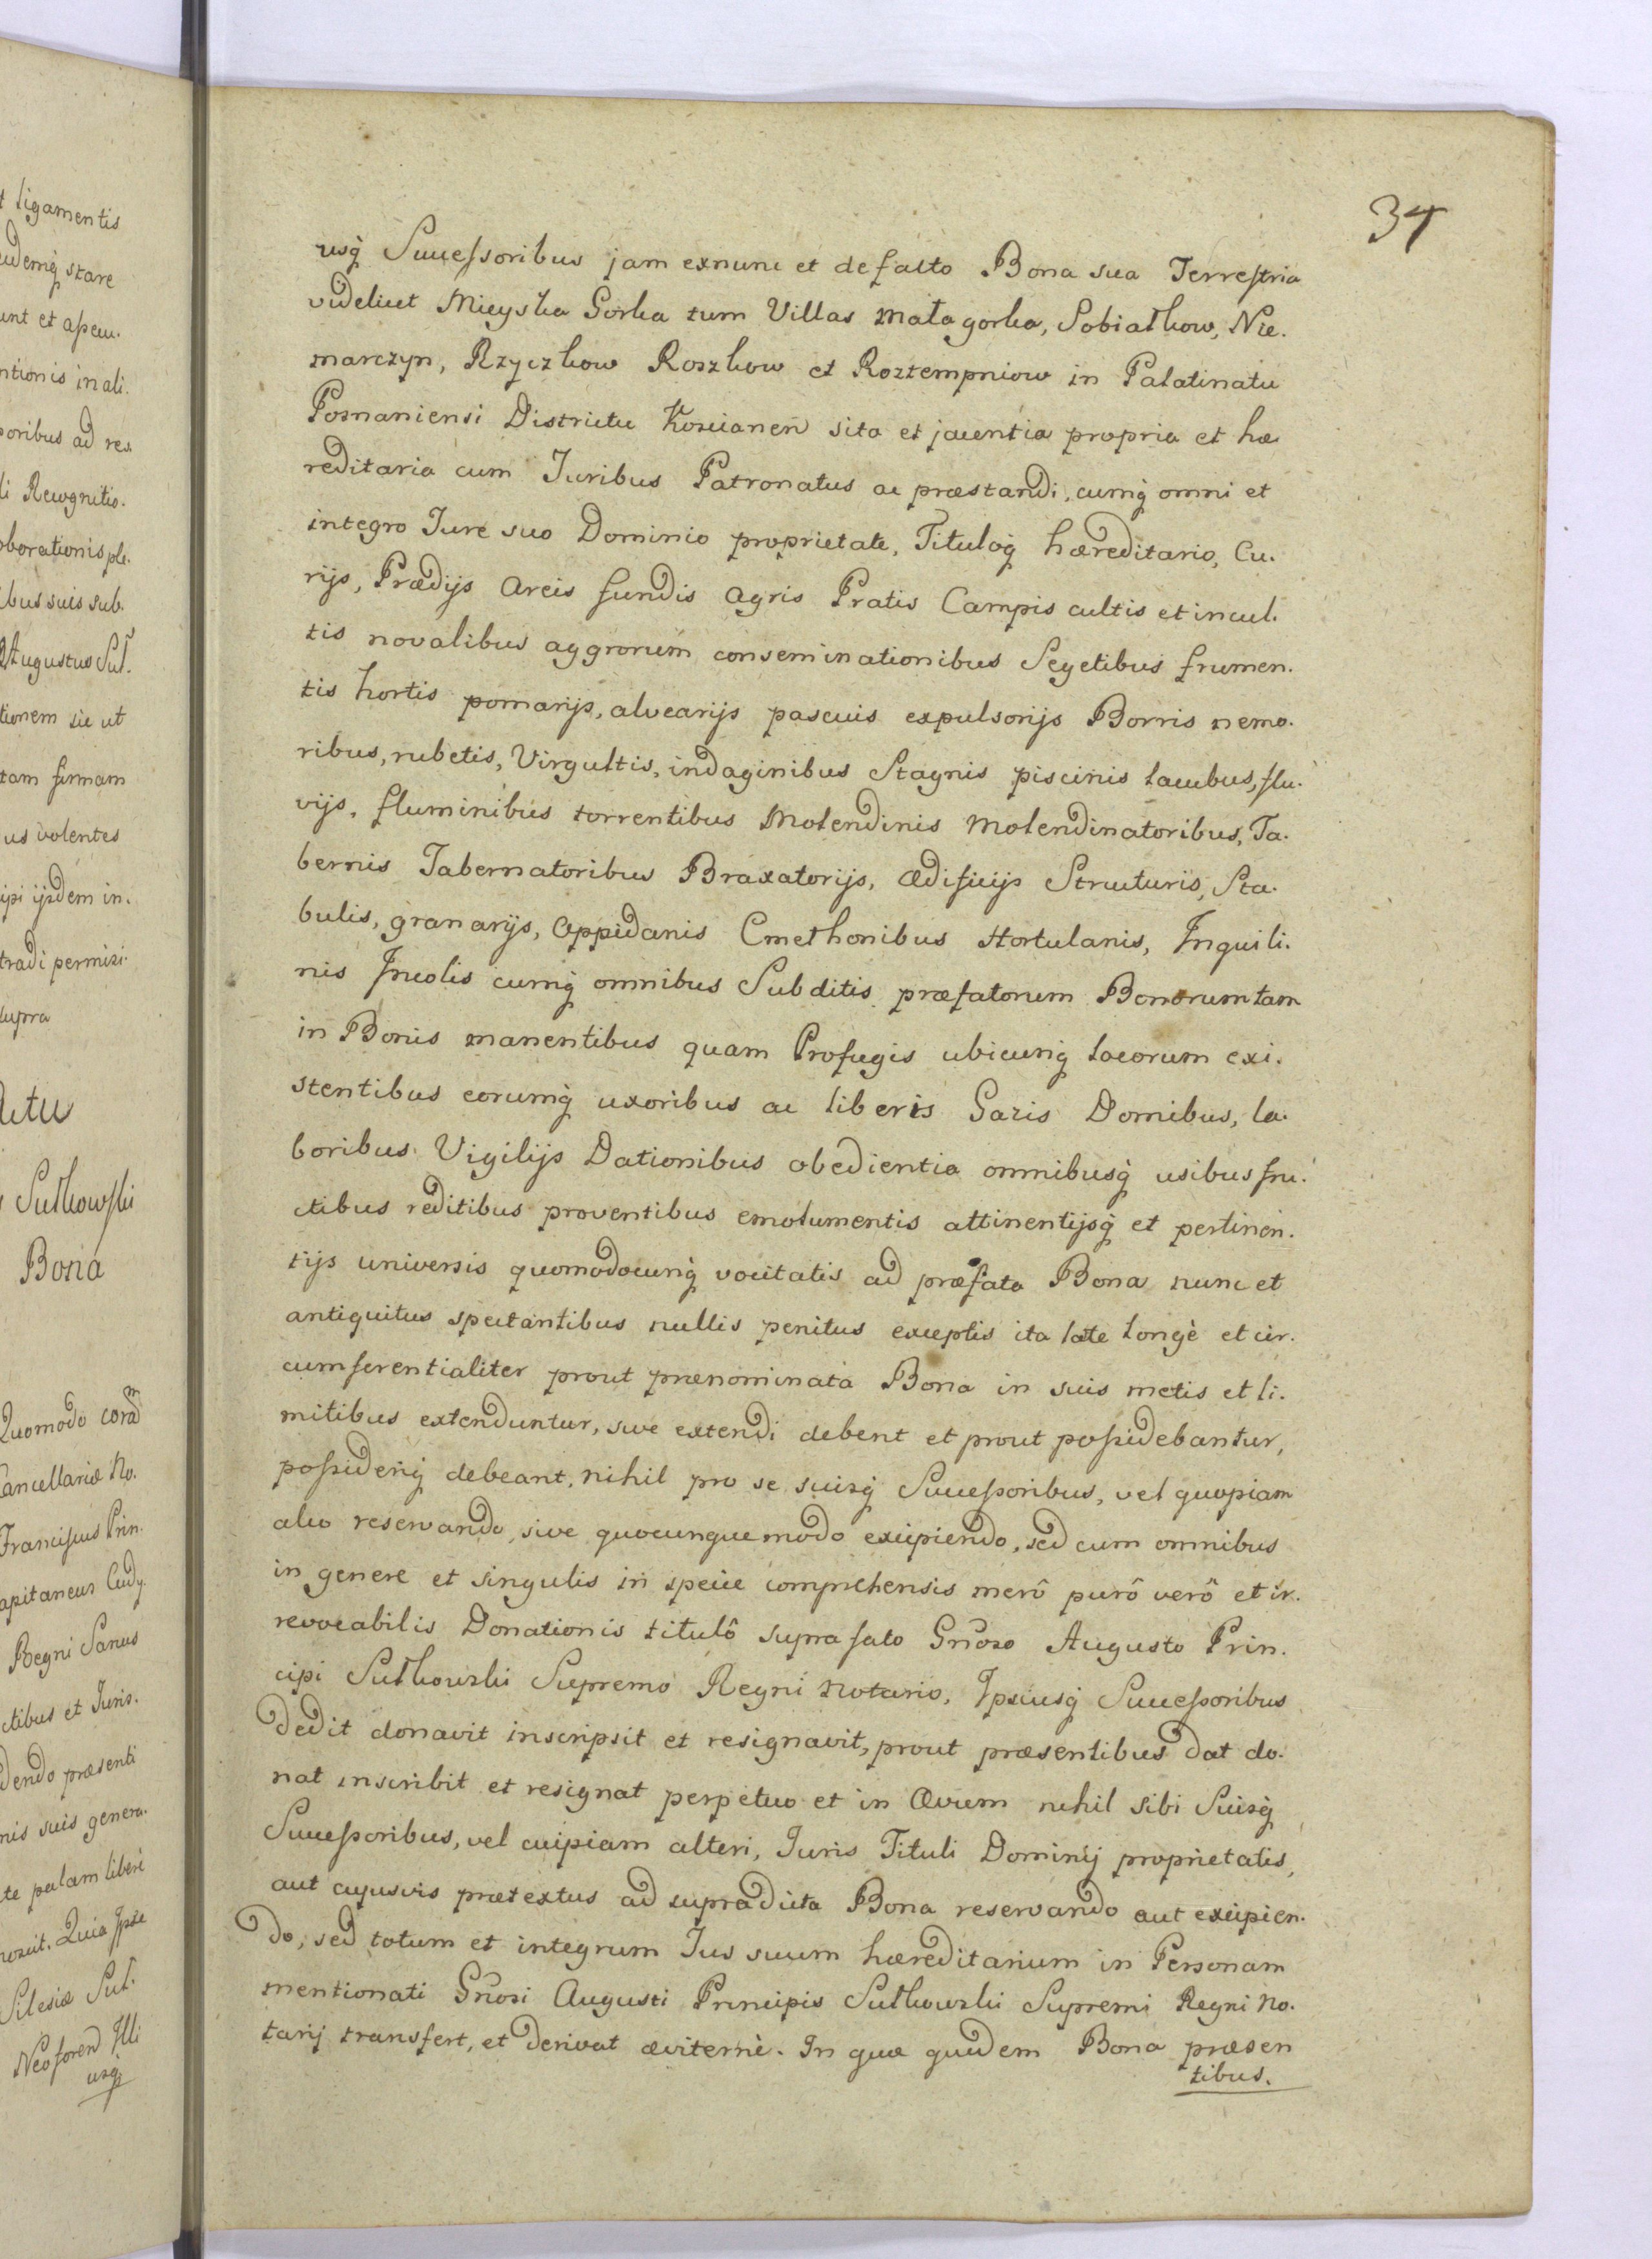 34
usq̀ Successoribus jam exnunc et defacto Bona sua Terrestria
videlicet Mieyska Gorka tum Villas Małagorka, Sobiałkow, Nie.
marczyn, Rzyczkow Roszkow et Roztempniow in Palatinatu
Posnaniensi Districtu Koscianeñ sita et jacentia propria et hæ
reditaria cum Juribus Patronatus ac præstandi, cumq̀ omni et
integro Jure suo Dominio proprietate, Tituloq̀ hæreditario, Cu.
rijs, Prædijs Areis fundis Agris Pratis Campis cultis et incul.
tis novalibus aggrorum conseminationibus Segetibus frumen.
tis hortis pomarijs, alvearijs pascuis expulsorijs Borris nemo.
ribus, rubetis, Virgultis, indaginibus Stagnis piscinis lacubus, flu.
vijs, fluminibus torrentibus Molendinis Molendinatoribus, Ta.
bernis Tabernatoribus Braxatorijs, Ædificijs Structuris, Sta.
bulis, granarijs, Oppidanis Cmethonibus Hortulanis, Inquili.
nis Incolis cumq̀ omnibus Subditis præfatorum Bonorum tam
in Bonis manentibus quam Profugis ubicunq̀ locorum exi.
stentibus eorumq̀ uxoribus ac liberis Gazis Domibus, la.
boribus Vigilijs Dationibus obedientia omnibusq̀ usibus fru.
ctibus reditibus proventibus emolumentis attinentijsq̀ et pertinen.
tijs universis quomodocunq̀ vocitatis ad præfata Bona nunc et
antiquitus spectantibus nullis penitus exceptis ita late longè et cir.
cumferentialiter prout prænominata Bona in suis metis et li.
mitibus extenduntur, sive extendi debent et prout possidebantur,
possideriq̀ debeant, nihil pro se suisq̀ Successoribus, vel quopiam
alio reservando, sive quocunque modo excipiendo, sed cum omnibus
in genere et singulis in specie comprehensis merô purô verô et ir.
revocabilis Donationis titulô suprafato Gñoso Augusto Prin.
cipi Sułkowski Supremo Regni Notario, Ipsiusq̀ Successoribus
dedit donavit inscripsit et resignavit, prout præsentibus dat do.
nat inscribit et resignat perpetuo et in Ævum nihil sibi Suisq̀
Successoribus, vel cuipiam alteri, Juris Tituli Dominij proprietatis,
aut cujusvis prætextus ad supradicta Bona reservando aut excipien.
do, sed totum et integrum Jus suum hæreditarium in Personam
mentionati Gñosi Augusti Principis Sułkowski Supremi Regni No.
tarij transfert, et derivat æviternè. In quæ quidem Bona præsen
tibus.